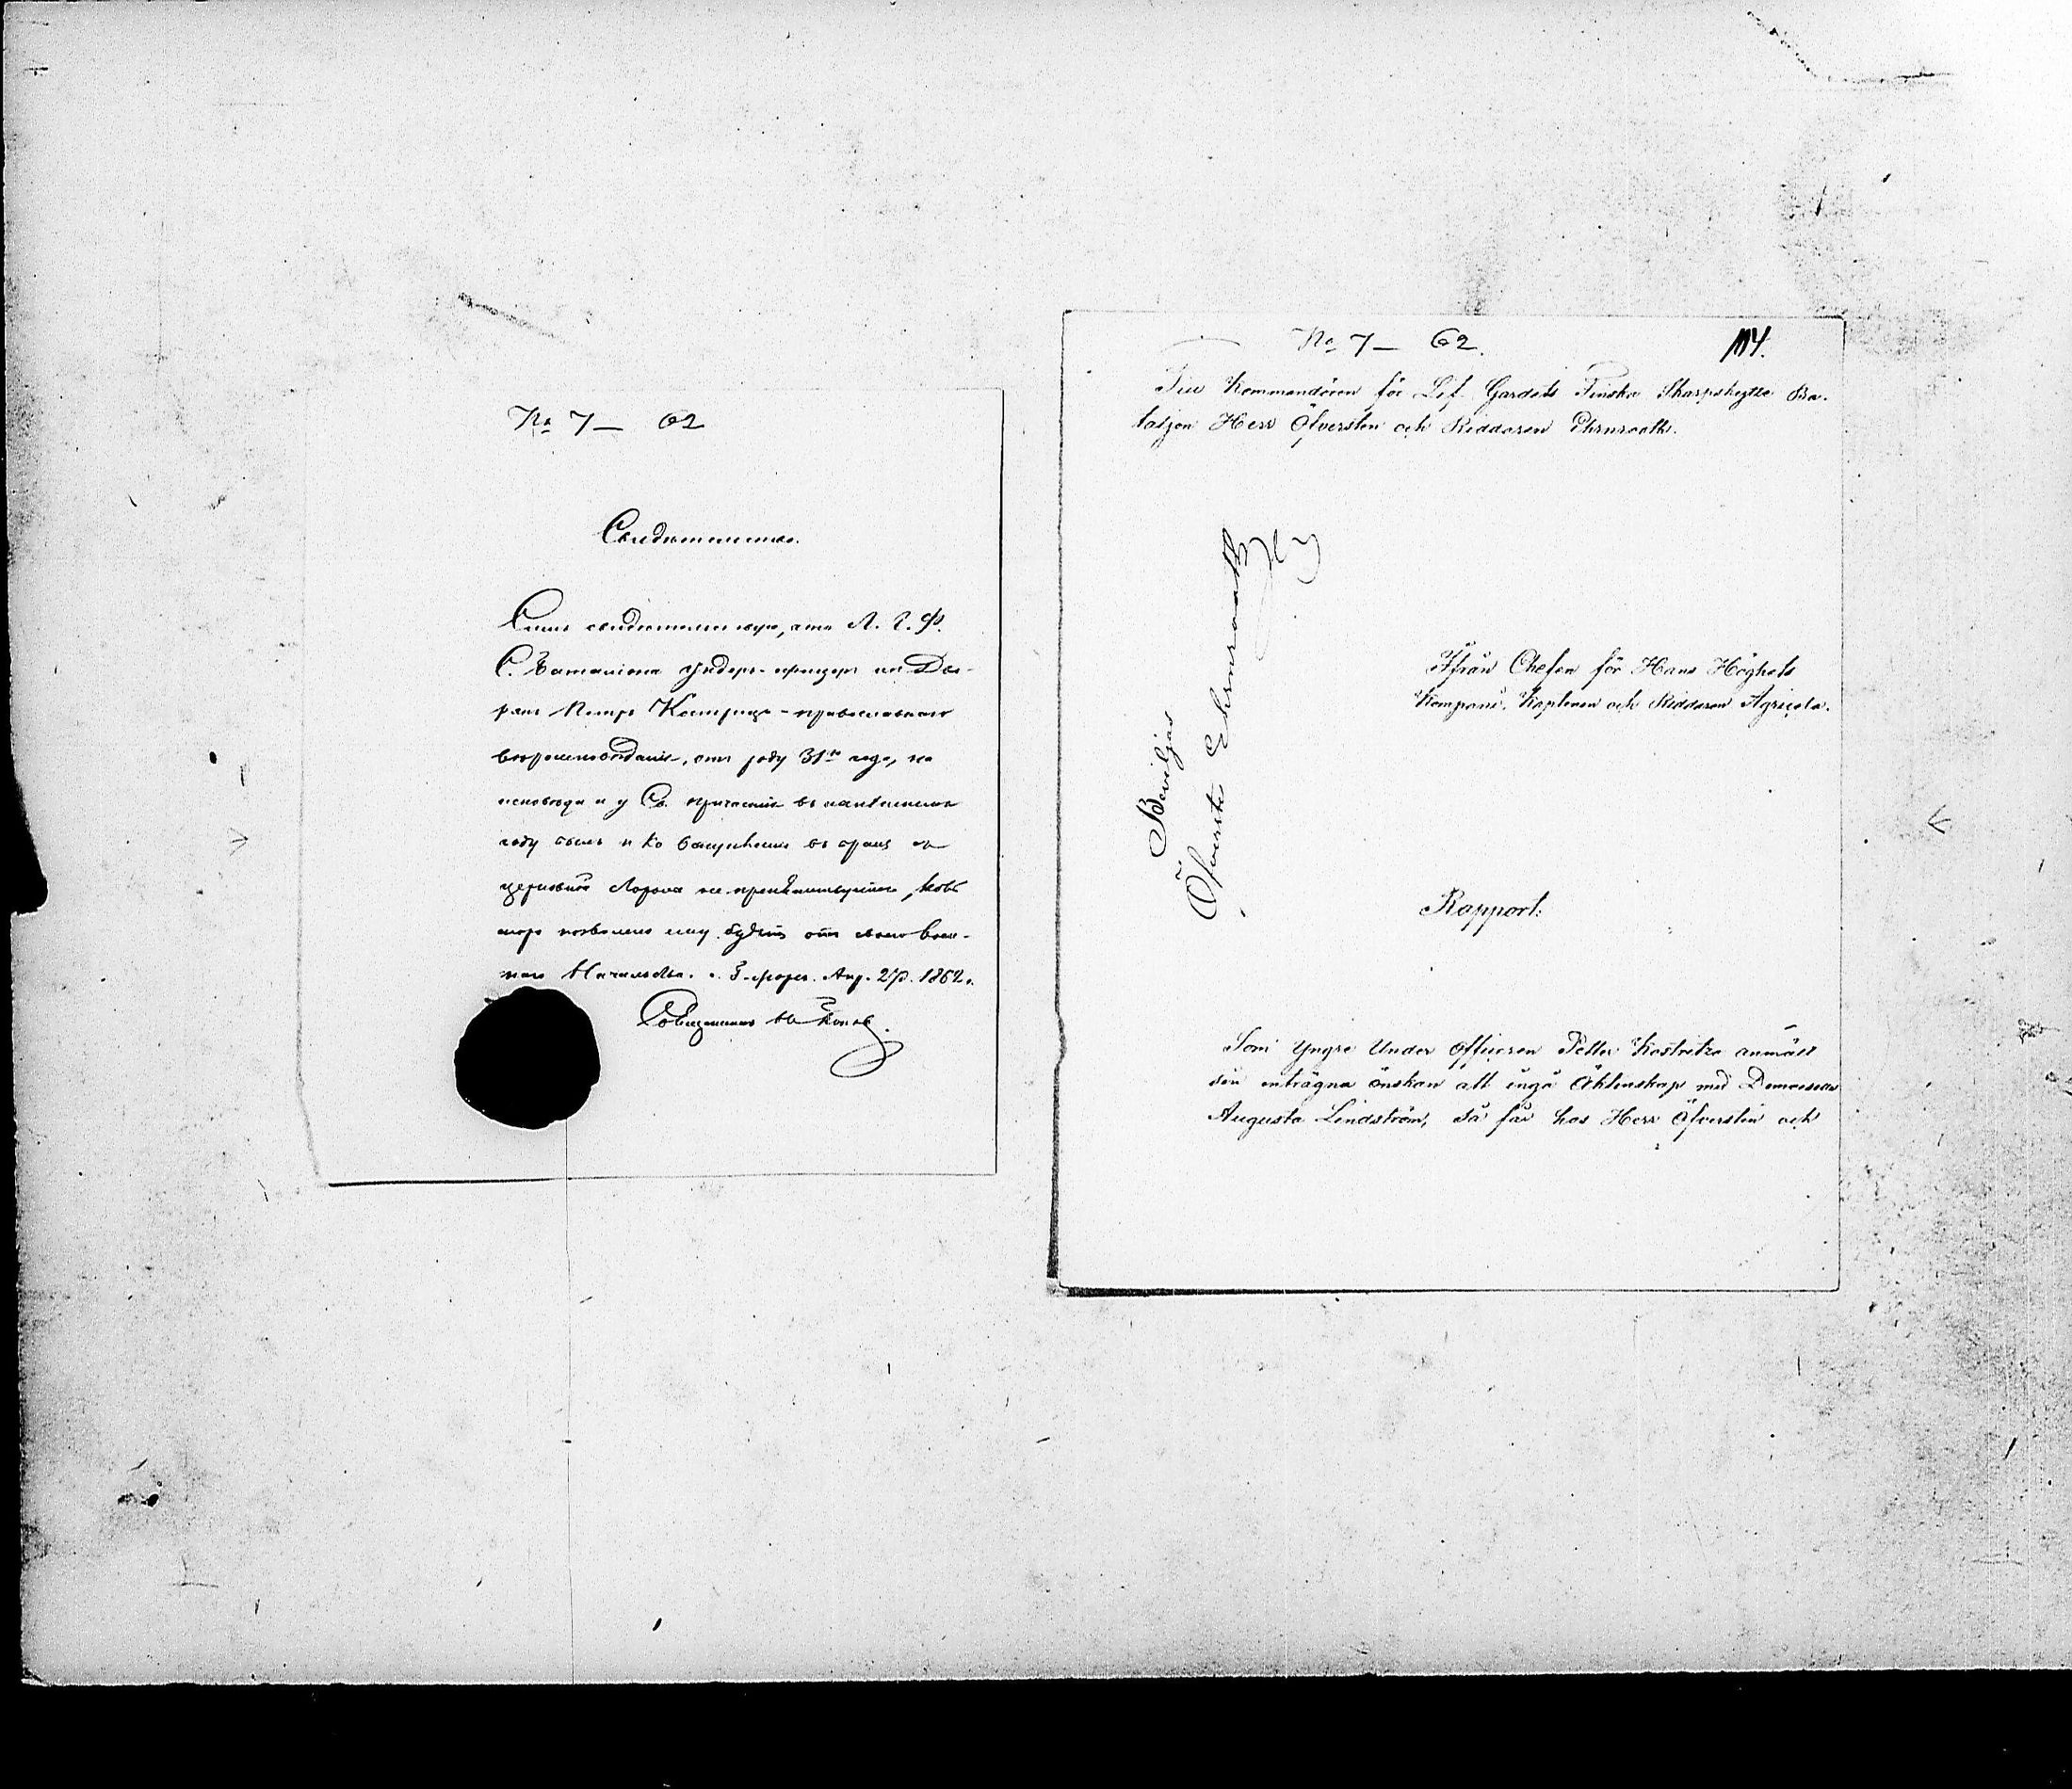 No 7 — 62
Свидѣтельство.
Симъ свидѣтельствую, что Л. Г. Ф.
С. Баталіона Ундеръ-офицеръ
Петръ Кострица - православнаго
вѣроисповѣданія, отъ роду 31го года, на
исповѣди и у Св. причастія въ
году былъ и ко вступленію въ бракъ съ
не препятствуетъ,
позволено ему будетъ отъ своего
Начальства. Апр. 1862 г.
Священникъ
No 7 — 62.
114.
Till Kommendören för Lif Gardets Finska Skarpskytte Ba-
taljon Herr Öfversten och Riddaren Ehrnrooth.
Beviljas
Öfverste Ehrnrooth
Ifrån Chefen för Hans Höghets
Kompani. Kaptenen och Riddaren Agricola.
Rapport:
Som Yngre Under Officeren Petter Kostritza anmält
sin enträgna önskan att ingå Äktenskap med Demoiselle
Augusta Lindström, så får hos Herr Öfversten och